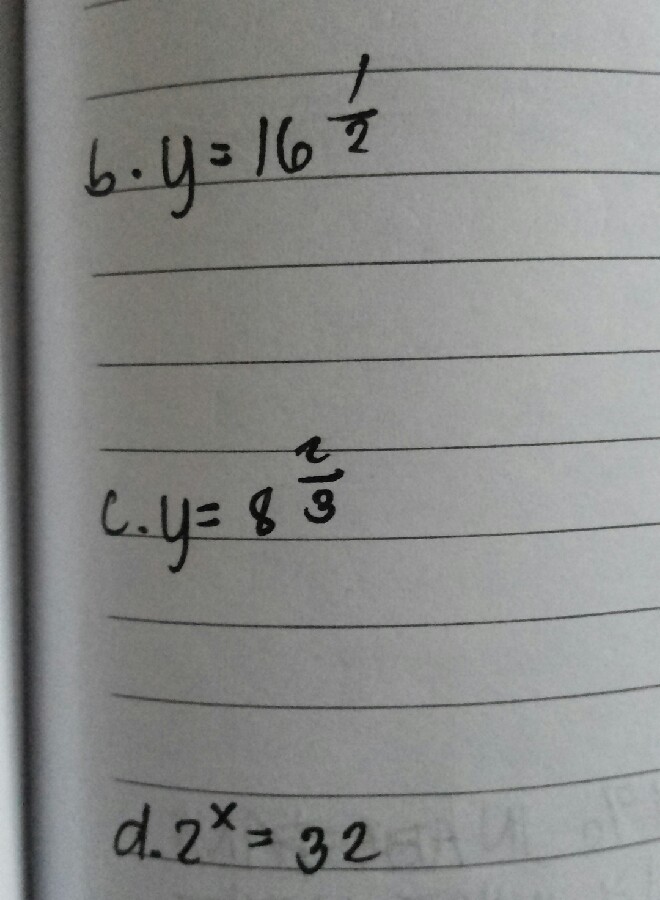 b. y = 16^(1/2)
c. y = 8^(2/3)
d. 2^x = 32